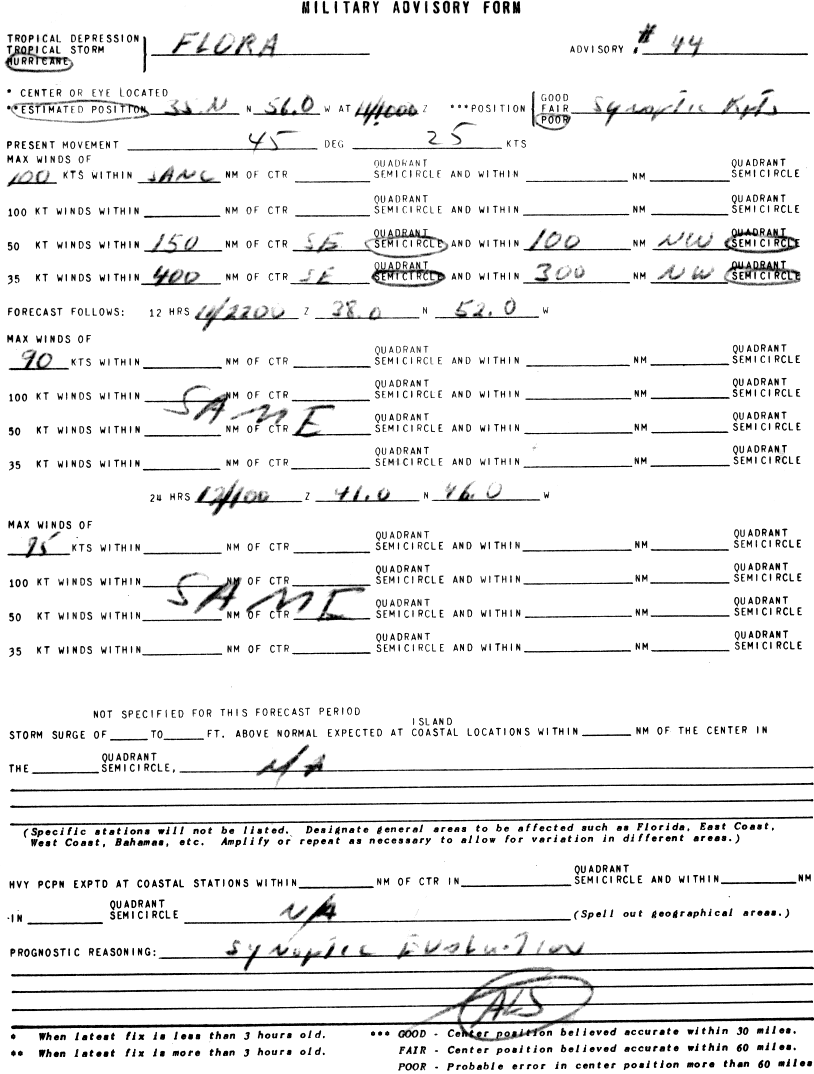 MILITARY ADVISORY FORM
TROPICAL DEPRESSION
TROPICAL STORM
HURRICANE
FLORA
ADVISORY # 44
* CENTER OR EYE LOCATED
**ESTIMATED POSITION 35 N N 56.0 W AT 11/1000 Z ***POSITION GOOD FAIR POOR Synoptic Rpts
PRESENT MOVEMENT 45 DEG 25 KTS
MAX WINDS OF
100 KTS WITHIN NM OF CTR QUADRANT SEMICIRCLE AND WITHIN NM QUADRANT SEMICIRCLE
100 KT WINDS WITHIN NM OF CTR QUADRANT SEMICIRCLE AND WITHIN NM QUADRANT SEMICIRCLE
50 KT WINDS WITHIN 150 NM OF CTR SE QUADRANT SEMICIRCLE AND WITHIN 100 NM NW QUADRANT SEMICIRCLE
35 KT WINDS WITHIN 400 NM OF CTR SE QUADRANT SEMICIRCLE AND WITHIN 300 NM NW QUADRANT SEMICIRCLE
FORECAST FOLLOWS: 12 HRS 11/2200 Z 38.0 N 52.0 W
MAX WINDS OF
90 KTS WITHIN NM OF CTR QUADRANT SEMICIRCLE AND WITHIN NM QUADRANT SEMICIRCLE
100 KT WINDS WITHIN NM OF CTR QUADRANT SEMICIRCLE AND WITHIN NM QUADRANT SEMICIRCLE
SAME
50 KT WINDS WITHIN NM OF CTR QUADRANT SEMICIRCLE AND WITHIN NM QUADRANT SEMICIRCLE
35 KT WINDS WITHIN NM OF CTR QUADRANT SEMICIRCLE AND WITHIN NM QUADRANT SEMICIRCLE
24 HRS Z 41.0 N 46.0 W
MAX WINDS OF
75 KTS WITHIN NM OF CTR QUADRANT SEMICIRCLE AND WITHIN NM QUADRANT SEMICIRCLE
100 KT WINDS WITHIN NM OF CTR QUADRANT SEMICIRCLE AND WITHIN NM QUADRANT SEMICIRCLE
SAME
50 KT WINDS WITHIN NM OF CTR QUADRANT SEMICIRCLE AND WITHIN NM QUADRANT SEMICIRCLE
35 KT WINDS WITHIN NM OF CTR QUADRANT SEMICIRCLE AND WITHIN NM QUADRANT SEMICIRCLE
NOT SPECIFIED FOR THIS FORECAST PERIOD
ISLAND
STORM SURGE OF TO FT. ABOVE NORMAL EXPECTED AT COASTAL LOCATIONS WITHIN NM OF THE CENTER IN
THE QUADRANT SEMICIRCLE, N/A
(Specific stations will not be listed. Designate general areas to be affected such as Florida, East Coast,
West Coast, Bahamas, etc. Amplify or repeat as necessary to allow for variation in different areas.)
HVY PCPN EXPTD AT COASTAL STATIONS WITHIN NM OF CTR IN QUADRANT SEMICIRCLE AND WITHIN NM
IN QUADRANT SEMICIRCLE N/A (Spell out geographical areas.)
PROGNOSTIC REASONING: Synoptic Evolution
ALS
* When latest fix is less than 3 hours old. *** GOOD - Center position believed accurate within 30 miles.
** When latest fix is more than 3 hours old. FAIR - Center position believed accurate within 60 miles.
POOR - Probable error in center position more than 60 miles